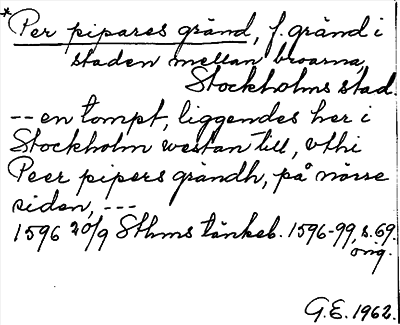 *Per pipares gränd, f. gränd i
staden mellan broarna,
Stockholms stad.
-- en tompt, liggendes her i
Stockholm westan till, vthi
Peer pipers grändh, på nörre
siden, ---
1596 20/9 Sthms tänkeb. 1596-99, s. 69.
orig.
G.E. 1962.